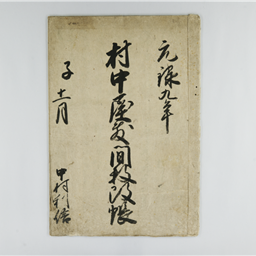 元禄九年
村中家数間数改帳
子十一月
中村利倍